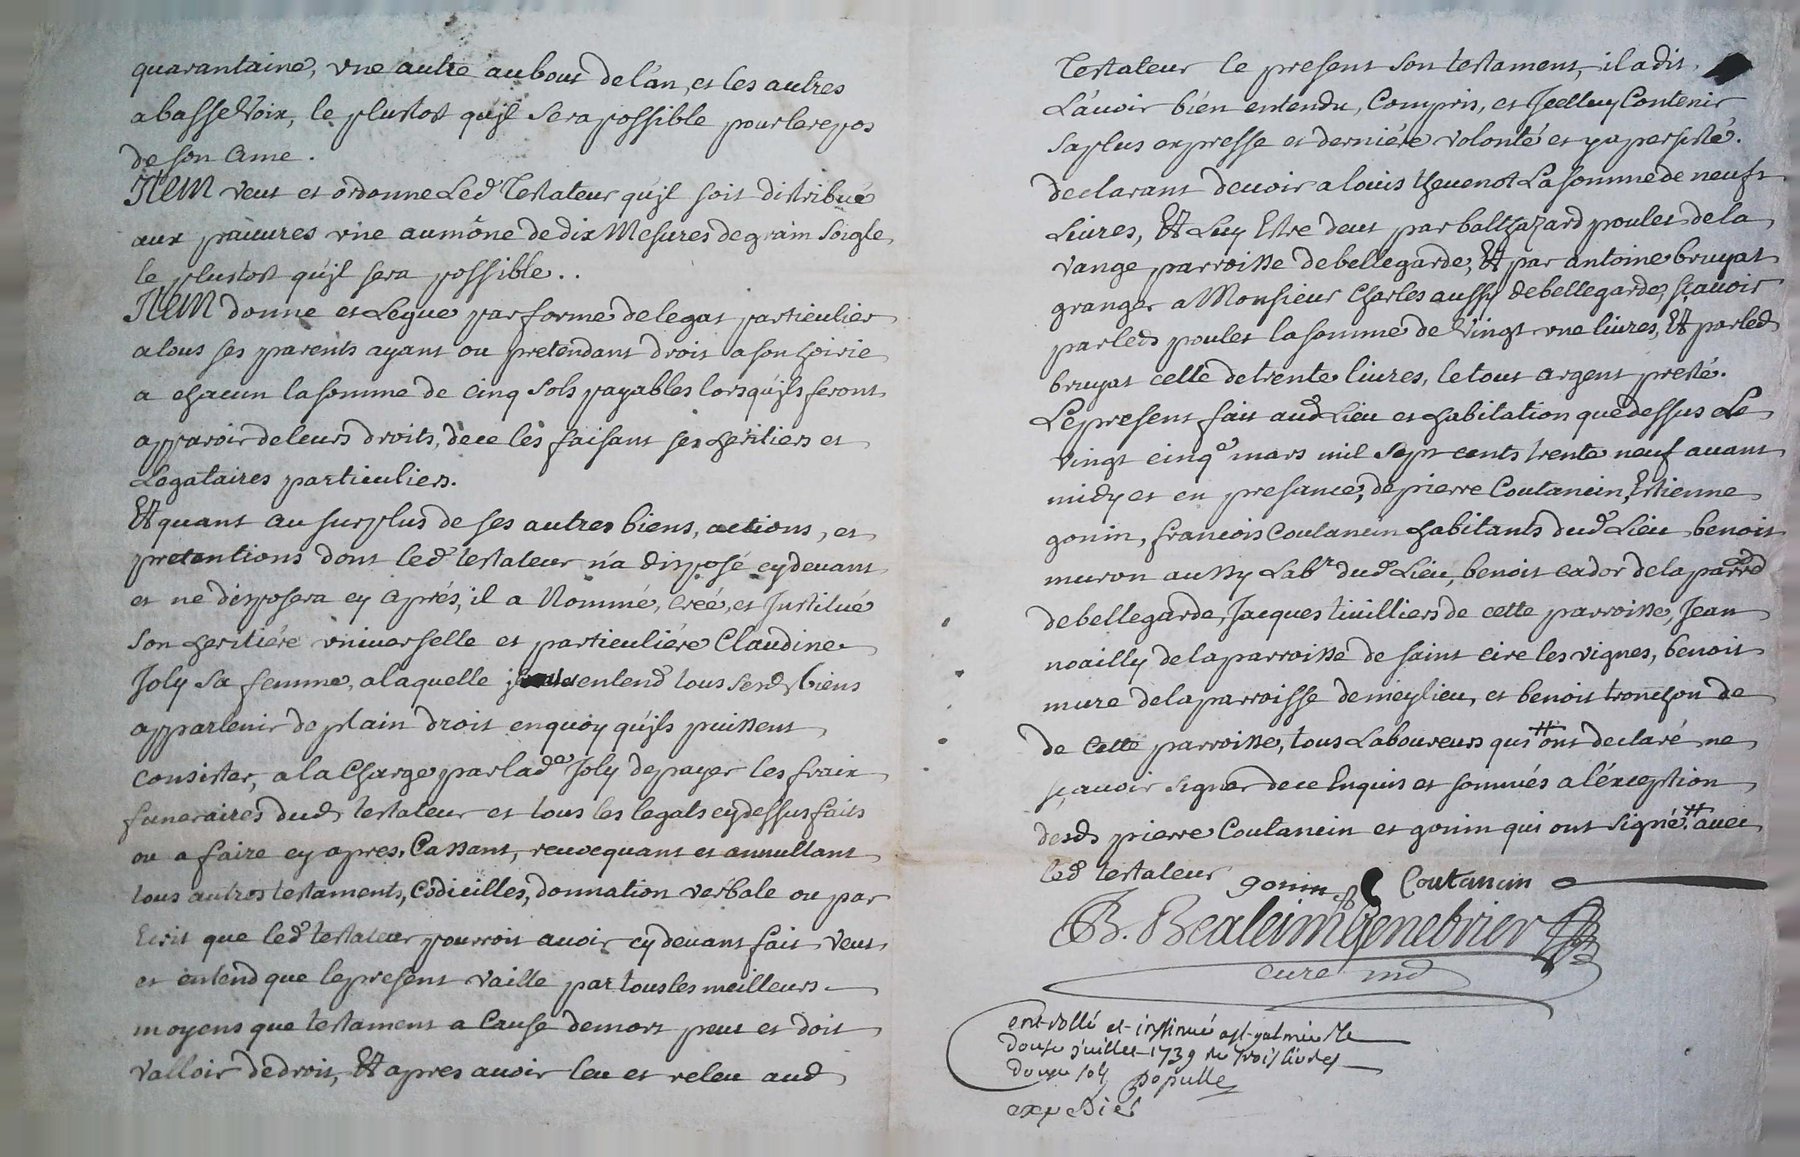 quarantaine, une autre au bout de l'an, et les autres
a basse Voix, le plustost qu'jl sera possible pour le repos
de son ame.
Item veut et ordonne Led. Testateur qu'jl soit distribué
aux pauures vne aumône de dix Mesures de grain soigle
le plustost qu'jl sera possible..
Item donne et Legue par forme de legat particulier
a tous ses parents ayant ou pretendant droit a son hoirie
a chacun la somme de cinq sols payables lorsqu'jls feront
apparoir de leurs droits, de ce les faisant ses heritiers et
Legataires particuliers.
Et quant au surplus de ses autres biens, actions, et
pretentions dont led. testateur n'a disposé cy devant
et ne disposera cy aprés, il a Nommé, créé, et Institué
Son heritiére vniuerselle et particuliére Claudine
Joly sa femme, a laquelle entend tous sesd. biens
appartenir de plain droit en quoy qu'jls puissent
consister, a la Charge par lad. Joly de payer les fraix
funeraires dud. testateur et tous les legats cy dessus faits
ou a faire cy apres, Cassant, reuocquant et annullant
tous autres testaments, Codicilles, donnation verbale ou par
Ecrit que led. testateur pourroit auoir cy deuant fait, veut
et entend que le present vaille par tous les meilleurs
moyens que testament a Cause de mort peut et doit
valloir de droit, Et apres auoir leu et releu aud.
Testateur le present son testament, il a dit
L'auoir bién entendu, Compris, et Jcelluy Contenir
sa plus expresse et derniére volonté et y a persisté.
declarant deuoir a louis theuenot La somme de neuf
Liures, Et Luy Estre deut par balthazard poulet de la
vange parroisse de bellegarde, Et par antoine bruyat
granger a Monsieur Charles aussy de bellegarde, sçauoir
par led. poulet la somme de Vingt vne liures, Et par led.
bruyat celle de trente liures, le tout argent presté.
Le present fait aud. Lieu et habitation que dessus Le
vingt cinqe. mars mil sept cents trente neuf auant
midy et en presance, de pierre Coutancin, Estienne
gonin, francois Coutancin habitants dud. Lieu benoit
muron aussy Labr. dud. Lieu, benoit cador de la parr.
de bellegarde, Jacques tiuilliers de cette parroisse, Jean
noailly de la parroisse de saint cire les vignes, benoit
mure de la parroisse de meylieu, et benoit tronchon de
de Cette parroisse, tous Laboureurs qui # ont declaré ne
sçauoir signer de ce Enquis et sommés a l'exception
desd. pierre Coutancin et gonin qui ont signé # auec
led. testateur gonin Coutancin
Genebrier
cure
controllé et insinué a st galmier le
douze juillet 1739 re trois liures
douze sols Populle
expedié